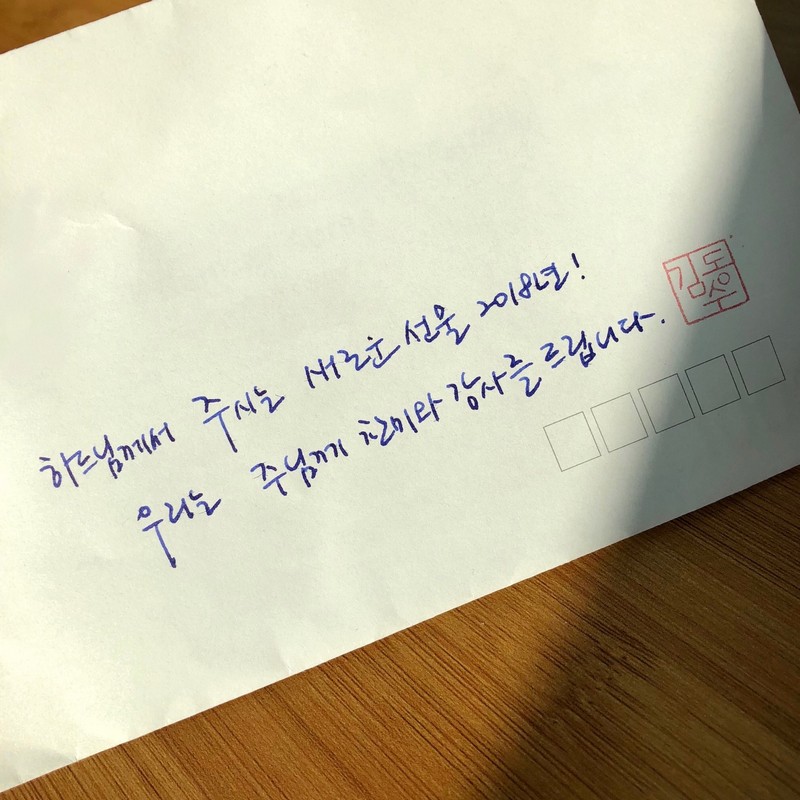 하느님께서 주시는 새로운 선물 2018년!
우리는 주님께 찬미와 감사를 드립니다.
김도
수